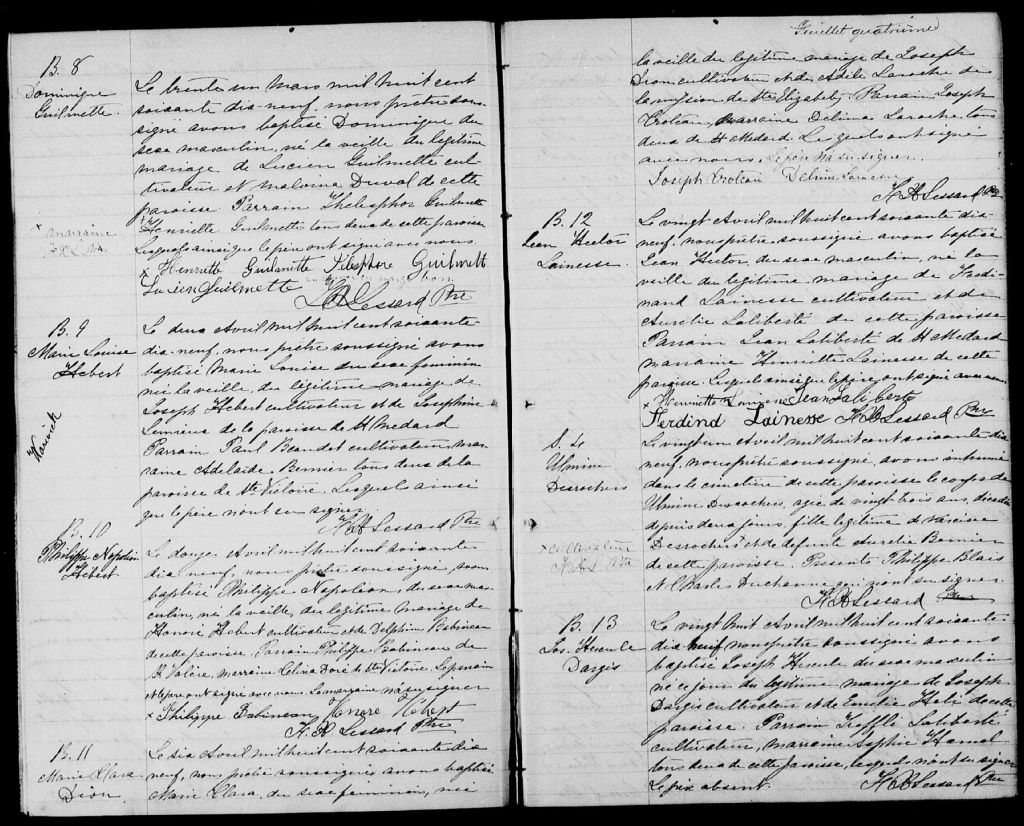 B. 8
Dominique
Guilmette.
Le trente un Mars mil huit cent
soixante dix neuf, nous prêtre sous-
signé avons baptisé Dominique du
sexe masculin, né la veille du légitime
mariage de Lucien Guilmette cul-
tivateur et Malvina Duval de cette
paroisse Parrain Thelesphor Guilmette
x Henriette Guilmette tous deux de cette paroisse
Lesquels ainsi que le père ont signé avec nous.
x marraine
x Henriette Guilmette Télesphore Guilmett
Lucien Guilmette
F. A. Lessard Ptre
B. 9
Marie Louise
Hebert
Warwick
Le deux Avril mil huit cent soixante
dix neuf, nous prêtre soussigné avons
baptisé Marie Louise du sexe féminin
née la veille, du légitime mariage de
Joseph Hebert cultivateur et de Josephine
Lemieux de la paroisse de St Medard
Parrain Paul Beaudet cultivateur, mar-
raine Adelaide Bernier tous deux de la
paroisse de Ste Victoire. Lesquels ainsi
que le père n'ont su signer.
F. A. Lessard Ptre
B. 10
Philippe Napoléon
Hebert
Le douze Avril mil huit cent soixante
dix neuf, nous prêtre soussigné, avons
baptisé Philippe Napoleon, du sexe mas-
culin, né la veille, du légitime mariage de
Honoré Hebert cultivateur et de Delphine Babineau
de cette paroisse, Parrain Philippe Babineau de
St Valère, marraine Célina Doré de Ste Victoire. Le parrain
et le père ont signé avec nous. La marraine n'a su signer
x Philippe Babineau Honoré Hébert
F. A. Lessard Ptre
B. 11
Marie Clara
Dion.
Le six Avril mil huit cent soixante dix
neuf, nous prêtre soussigné avons baptisé
Marie Clara, du sexe féminin, née
Feuillet quatrième
la veille du légitime mariage de Joseph
Dion cultivateur et de Adile Laroche de
la mission de Ste Elizabeth. Parrain Joseph
Croteau, marraine Delima Laroche tous
deux de St Medard. Lesquels ont signé
avec nous. Le père n'a su signer.
Joseph Croteau Delima Laroche
F. A. Lessard Ptre
B. 12
Jean Hector
Lainesse.
Le vingt Avril mil huit cent soixante dix-
neuf, nous prêtre, soussigné avons baptisé
Jean Hector, du sexe masculin, né la
veille du légitime mariage de Ferdi-
nand Lainesse cultivateur et de
Aurelie Laliberté de cette paroisse
Parrain Jean Laliberté de St Medard
marraine Henriette Lainesse de cette
paroisse. Lesquels ainsi que le père, ont signé avec nous.
x Henriette Lainesse Jean Laliberte
Ferdind Lainesse F. A. Lessard Ptre
S. 4
Ulmine
Desrochers
Le vingt un Avril mil huit cent soixante dix
neuf, nous prêtre soussigné, avons inhumé
dans le cimetière de cette paroisse le corps de
Ulmine Desrochers, agée de vingt trois ans, décédée
depuis deux jours, fille légitime de Narcisse
Desrochers x et de defunt Aurelie Bernier
de cette paroisse. Presents Philippe Blais
et Charles Duchesne qui n'ont su signer.
x cultivateur
F. A. L. Ptre
F. A. Lessard Ptre
B. 13
Jos. Hercule
Dargis
Le vingt huit Avril mil huit cent soixante-
dix neuf nous prêtre soussigné avons
baptisé Joseph Hercule du sexe masculin
né ce jour du légitime mariage de Joseph
Dargis cultivateur et de Emelie Héli de cette
paroisse. Parrain Treffli Laliberté
cultivateur, marraine Sophie Hamel
tous deux de cette paroisse, lesquels n'ont su signer
Le père absent.
F. A. Lessard Ptre